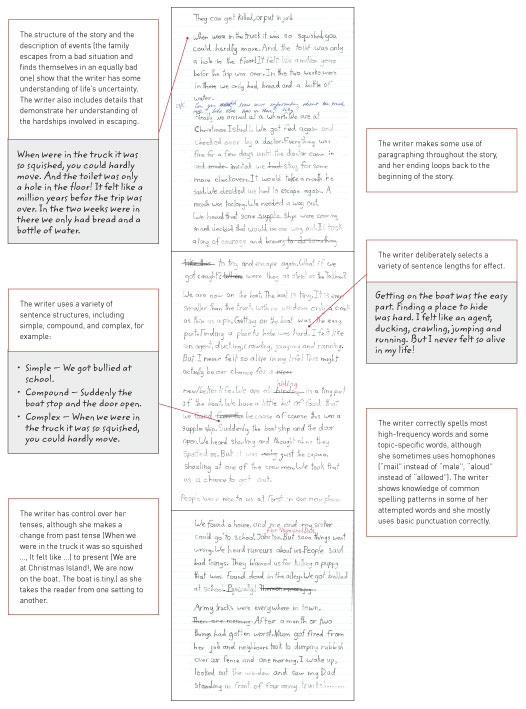 The structure of the story and the
description of events (the family
escapes from a bad situation and
finds themselves in an equally bad
one) show that the writer has some
understanding of life's uncertainty.
The writer also includes details that
demonstrate her understanding of
the hardships involved in escaping.
When were in the truck it was
so squished, you could hardly
move. And the toilet was only
a hole in the floor! It felt like a
million years befor the trip was
over. In the two weeks were in
there we only had bread and a
bottle of water.
The writer uses a variety of
sentence structures, including
simple, compound, and complex, for
example:
• Simple – We got bullied at
school.
• Compound – Suddenly the
boat stop and the door open.
• Complex – When we were in
the truck it was so squished,
you could hardly move.
The writer has control over her
tenses, although she makes a
change from past tense (When we
were in the truck it was so squished
..., It felt like ...) to present (We are
at Christmas Island!, We are now
on the boat. The boat is tiny.) as she
takes the reader from one setting to
another.
They can get killed, or put in jail.
When were in the truck it was so squished, you
could hardly move. And the toilet was only
a hole in the floor! It felt like a million years
befor the trip was over. In the two weeks were
in there we only had bread and a bottle of
water.
Finally we arrived at a wharf. We are at
Christmas Island! We got fed again and
checked over by a doctor. Everything was
fine for a few days until the doctor came in
more checkovers. It would take a month he
said. We decided we had to escape again. A
month was too long. We needed a way out.
We heard that some supply ships were coming
to try and escape again. What if we
got caught?
We are now on the boat. The boat is tiny. It is even
smaller than the truck
Getting on the boat was the easy
part. Finding a place to hide was hard. I felt like
an agent, ducking, crawling, jumping and running.
But I never felt so alive in my life! This might
actually be our chance for a
new better life. We are all hiding in a tiny part
of the boat. We have a little bit of food that
we found because of course this was a
supply ship. Suddenly the boat stop and the door
open. We heard shouting and thought
spotted us. But it was just the captain
shouting at one of the crewmen. We took that
as a chance to get out.
People were nice to us at first in our new place.
We found a house, and me and my sister
could go to school. But soon things went
wrong. We heard rumours about us. People said
bad things. They blamed us for killing a puppy
that was found dead in the alley. We got bullied
at school.
Army trucks were everywhere in town.
After a month or two
things had gotten worst. Mum got fired from
her job and neighbours took to dumping rubbish
over our fence and one morning, I woke up,
looked out the window and saw my Dad
standing in front of four army trucks
The writer makes some use of
paragraphing throughout the story,
and her ending loops back to the
beginning of the story.
The writer deliberately selects a
variety of sentence lengths for effect.
Getting on the boat was the easy
part. Finding a place to hide
was hard. I felt like an agent,
ducking, crawling, jumping and
running. But I never felt so alive
in my life!
The writer correctly spells most
high-frequency words and some
topic-specific words, although
she sometimes uses homophones
("mail" instead of "male", "aloud"
instead of "allowed"). The writer
shows knowledge of common
spelling patterns in some of her
attempted words and she mostly
uses basic punctuation correctly.